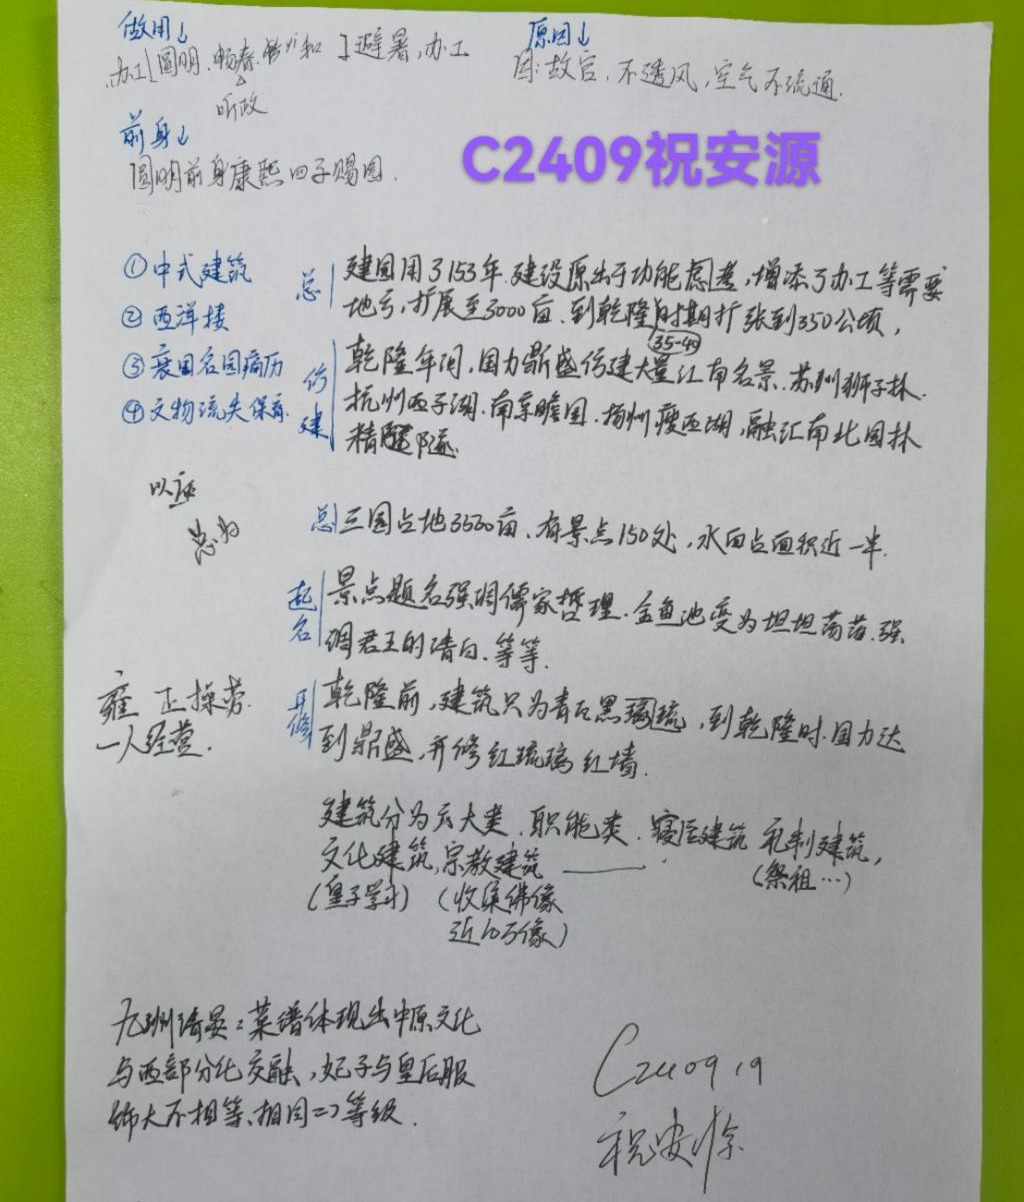 做用↓
办工[圆明.畅春. 和 ]避暑,办工
听政
原因↓
因:故宫,不透风,空气不流通.
前身↓
圆明前身康熙四子赐园.
C2409祝安源
①中式建筑
②西洋楼
③衰园名园病历
④文物流失保存
总
建园用了153年.建设原出于功能虑,增添了办工等需要
地亏,扩展至3000亩.到乾隆时期扩张到350公顷,
35-49
仿建
乾隆年间,国力鼎盛仿建大量江南名景.苏州狮子林.
杭州西子湖.南京瞻园.扬州瘦西湖,融汇南北园林
精隧
以
总为
总
三园占地3500亩.有景点150处,水面占面积近一半.
起名
景点题名强调儒家哲理.金鱼池变为坦坦荡荡.强
调君王的清白.等等.
雍正操劳.
一人经营.
并修
乾隆前,建筑只为青瓦黑琉,到乾隆时.国力达
到鼎盛,并修红琉璃红墙.
建筑分为六大类.职能类.寝居建筑 礼制建筑,
(祭祖…)
文化建筑,宗教建筑——.
(皇子学习) (收集佛像
近10万像)
九洲清晏:菜谱体现出中原文化
与西部分化交融,妃子与皇后服
饰大不相等、相同=>等级.
C2409 19
祝安源